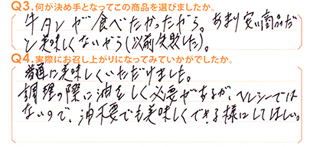 Q3.何が決め手となってこの商品を選びましたか。
牛タンが食べたかったから。あまり安い商品だ
と美味しくないから(以前失敗した)。
Q4.実際にお召し上がりになってみていかがでしたか。
普通に美味しくいただけました。
調理の際に油をしく必要があるが、ヘルシーでは
ないので、油不要でも美味しくできる様にしてほしい。